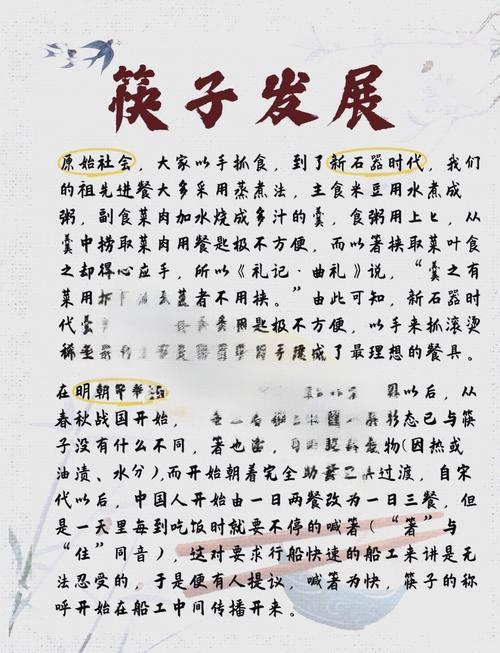 筷子发展
原始社会，大家以手抓食，到了新石器时代，我们
的祖先进餐大多采用蒸煮法，主食米豆用水煮成
粥，副食菜肉加水烧成多汁的羹，食粥用上匕，从
羹中捞取菜肉用餐是极不方便，而以箸挟取菜叶食
之却得心应手，所以《礼记·曲礼》说，“羹之有
菜用 者不用挟。”由此可知，新石器时
代 用是极不方便，以手来抓滚烫
稀 成了最理想的餐具。
在明朝 以后，从
春秋战国开始， 态已与筷
子没有什么不同，箸也 物(因热或
油渍、水分),而开始朝着完全 过渡，自宋
代以后，中国人开始由一日两餐改为一日三餐，但
是一天里每到吃饭时就要不停的喊箸(“箸”与
“住”同音)，这对要求行船快速的船工来讲是无
法忍受的，于是便有人提议，喊箸为快，筷子的称
呼开始在船工中间传播开来。